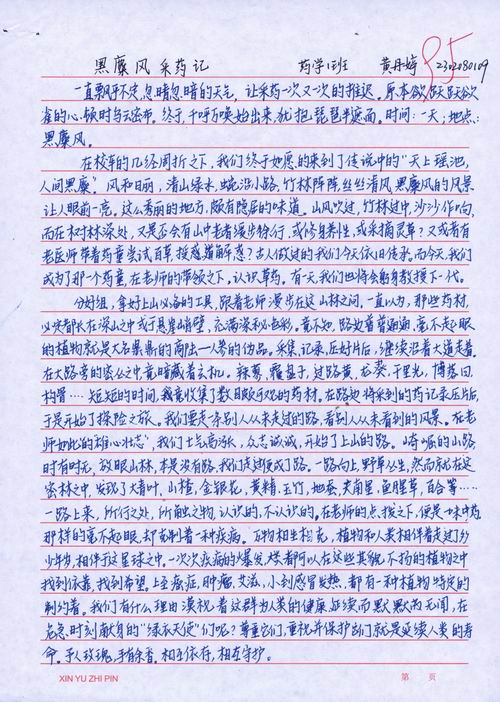 黑麋风采药记 药学1班 黄丹婷 2302080109
95
一直飘乎不定,忽晴忽暗的天气,让采药一次又一次的推迟。原本欲跃跃欲
雀的心,顿时乌云密布。终于,千呼万唤始出来,犹抱琵琶半遮面。时间:一天;地点:
黑麋风。
在校车的几经周折之下,我们终于如愿的来到了传说中的“天上瑶池,
人间黑麋”。风和日丽,青山绿水,蜿沿小路,竹林阵阵,丝丝清风,黑麋风的风景
让人眼前一亮。这么秀丽的地方,颇有隐居的味道。山风吹过,竹林过中,沙沙作响,
而在林对林深处,又是否会有山中老者缓步物行,或修身养性,或采摘灵草;又或者有
老医师带着药童尝试百草,授惑道解惑?古人做过的我们今天依旧传承,而今天,我们
成为了那一个药童,在老师的带领之下,认识草药。有一天,我们也将会躬身教授下一代。
分好组,拿好上山必备的工具,跟着老师漫步在这山林之间,一直以为,那些药材,
必定都长在深山之中或于悬崖峭壁,充满深秘色彩,竟不知,路边普普通通,毫不起眼
的植物就是大名鼎鼎的商陆——人参的伪品。采集、记录、压好片后,继续沿着大道走着。
在大路旁的密丛之中,竟暗藏着玄机。辣蓼,覆盆子,过路黄,龙葵,千里光,博落回,
构骨……短短的时间,我竟收集了数目颇可观的药材。在路边将采到的药记录压片后,
于是开始了探险之旅。我们要走条别人从未走过的路,看别人从未看到的风景。在老
师如此的雄心壮志”,我们士气高涨,众志诚诚,开始了上山的路。崎岖的山路,
时有时无,放眼山林,本是没有路,我们走过便成了路。一路向上,野草丛生,然而就在这
密林之中,发现了大青叶,山楂,金银花,黄精,玉竹,地茶,夹南星,鱼腥草,百合等……
一路上来,所行之处,所触之物,认识的,不认识的。在老师的点拨之下,便是一味中药,
那样的毫不起眼,却克制着一种疾病。万物相生相克,植物和人类相伴着走过多
少年岁,相伴于这星球之中。一次次疾病的爆发,患者都可以在这些其貌不扬的植物之中
找到依靠,找到希望。上至癌症,肿瘤,艾滋,小到感冒发热,都有一种植物特定的
制约着。我们有什么理由漠视着这群为人类的健康、延续而默默为无闻,在
危急时刻献身的“绿衣天使”们呢?尊重它们,重视并保护它们就是延续人类的寿
命。予人玫瑰,手留余香。相互依存,相互守护。
XIN YU ZHI PIN 第 页